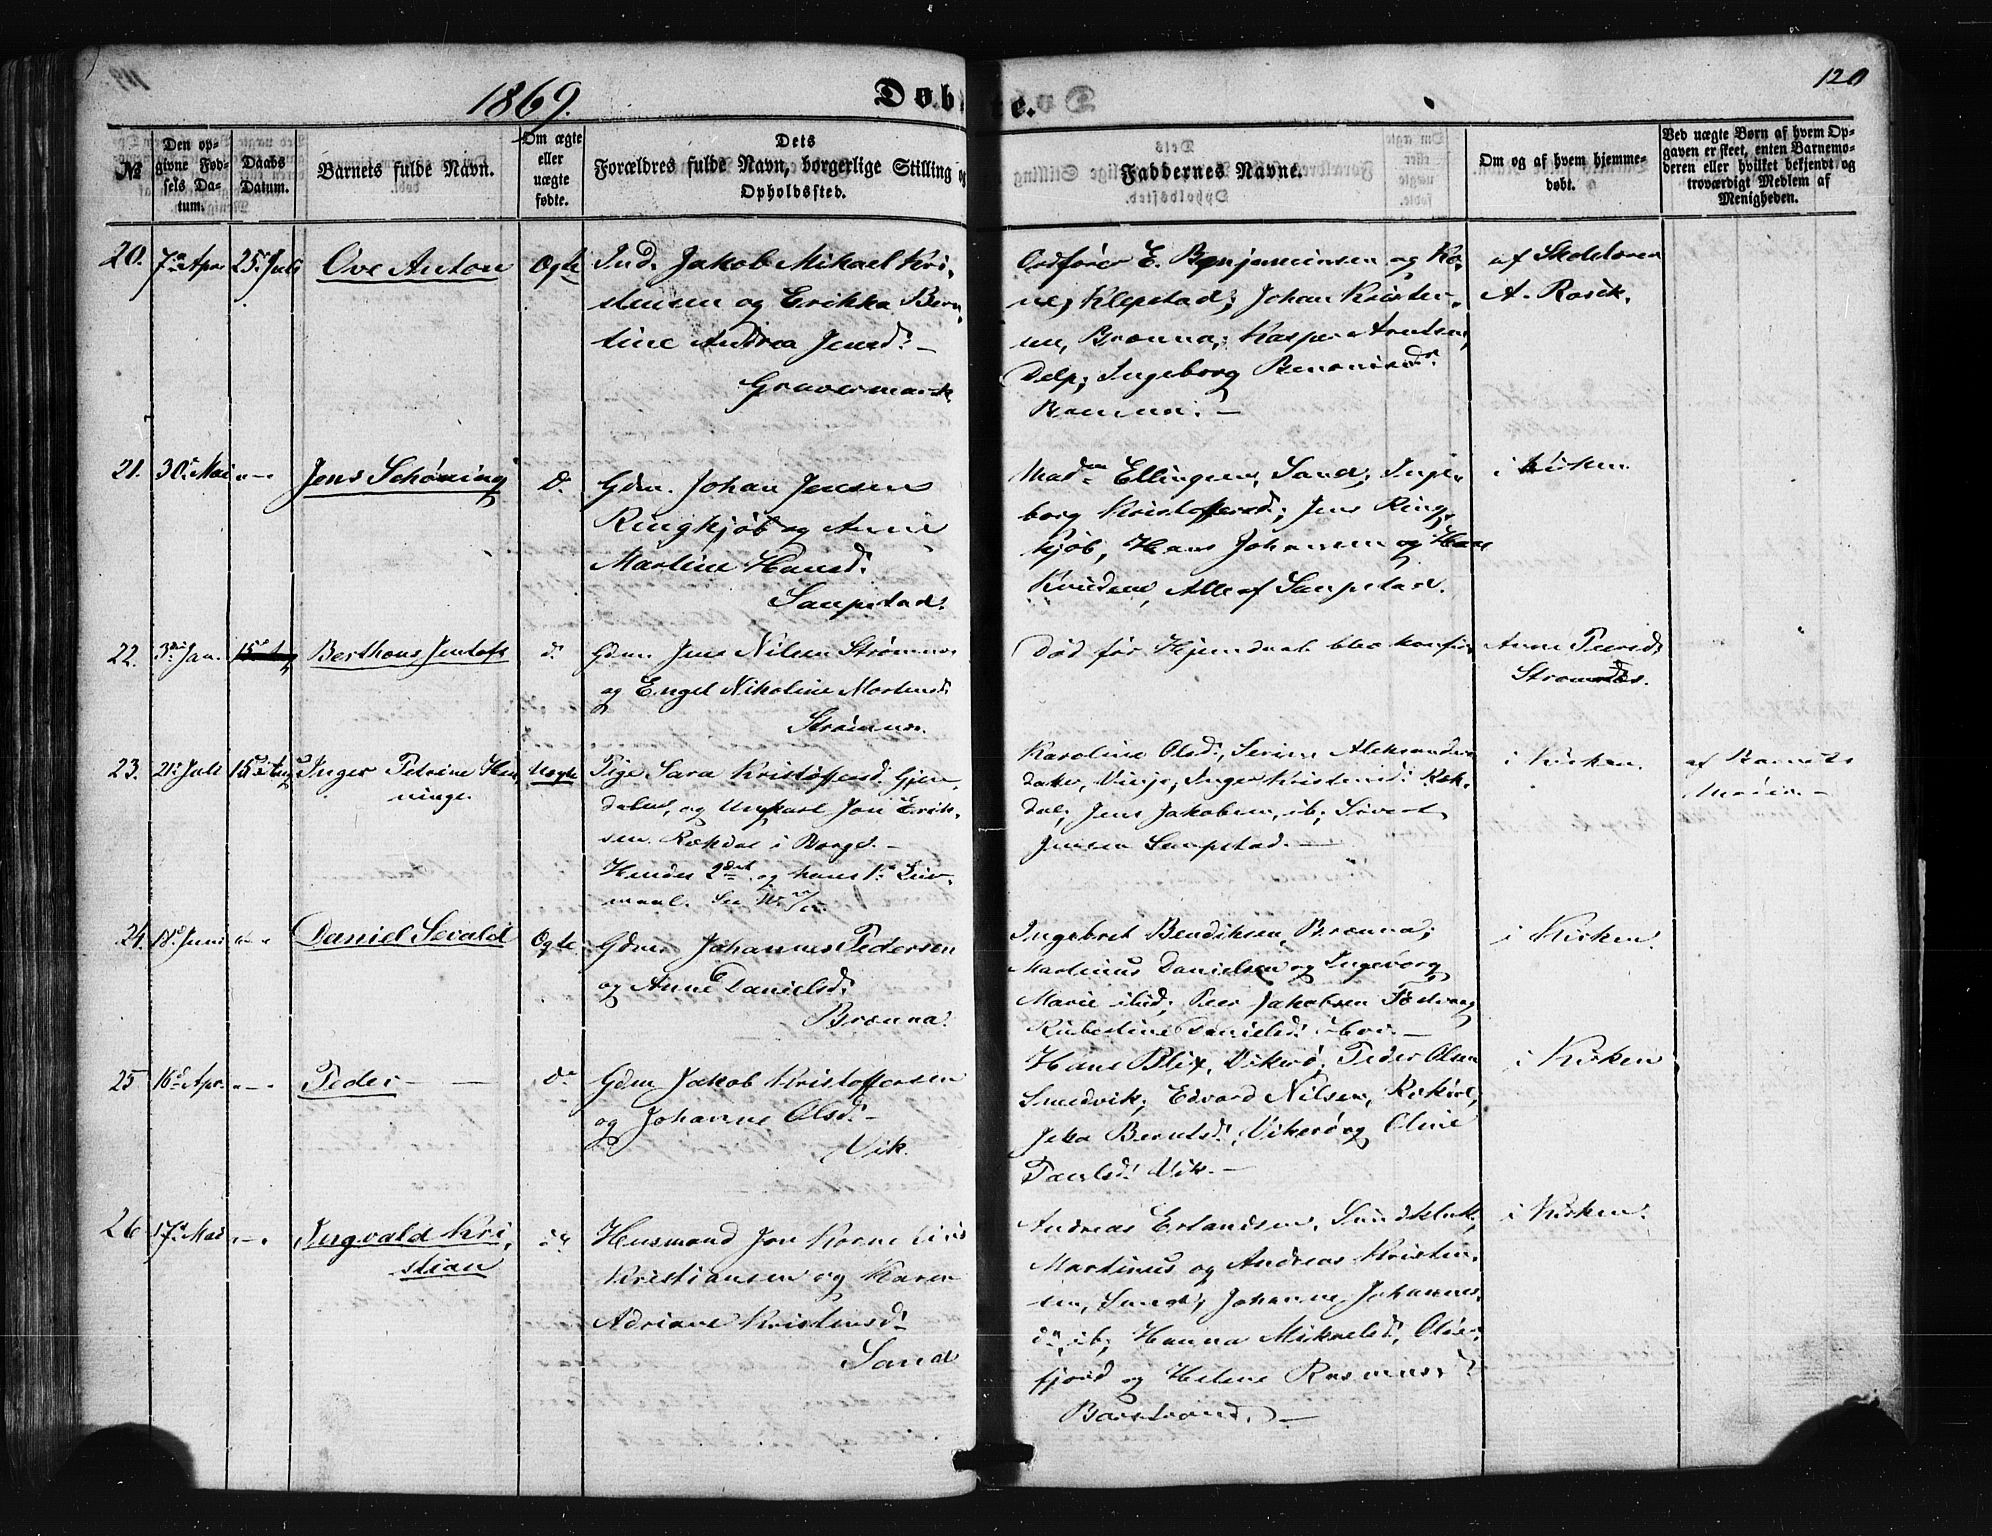 1869.
Døb
te.
120
№
Den op-
givne Fød-
sels Da-
tum.
Daabs
Datum.
Barnets fulde Navn.
Om ægte
eller
uægte
fødte.
Dets
Forældres fulde Navn, borgerlige Stilling og
Opholdssted.
Faddernes Navne.
Om og af hvem hjemme-
døbt.
Ved uægte Børn af hvem Op-
gaven er skeet, enten Barnemo-
deren eller hvilket bekjendt og
troværdigt Medlem af
Menigheden.
20. 7de Apr 25de Juli Ove Anton Ægte Ind. Jakob Mikael Kri-
stensen og Erikka Bern-
tine Andrea Jensd. –
Gravermark
Ordfører E. Benjaminsen og Ko-
ne, Klepstad; Johan Kristen-
sen, Brænna; Kasper Arntsen,
Delp; Ingeborg Benonisdr
Brænna. –
af Skolelærer
A. Rasik.
21. 30te Mai Jens Schøning d. Gdm. Johan Jensen
Ringkjøb og Anne
Martine Hansd.
Saupstad.
Madm Ellingsen, Sand; Inge-
borg Kristoffersd.; Jens Ring-
kjøb, Hans Johansen og Hans
Knudsen, Alle af Saupstad.
i Kirken
22. 3die Jan. Berthous Jentoft d. Gdm. Jens Nilsen Strømnes
og Engel Nikoline Mortensd.
Strømnes.
Død før Hjemdaab blev konfir.
Anne Peersd.
Strømnes.
23. 21de Juli 15de Aug Inger Petrine Hen-
ninge
Uægte Pige Sara Kristoffersd. Gjen-
dalen, og Ungkarl Jon Erik-
sen Rækdal i Borge. –
Hendes 2det og hans 1ste Leier-
maal.
Karoline Olsd., Serine Aleksanders-
datr, Vinje; Inger Kristensd. Ræk-
dal; Jens Jakobsen, ib; Sivert
Jensen Saupstad. –
i Kirken.
af Barnets
Moder. –
24. 18de Juni Daniel Sevald Ægte Gdm. Johannes Pedersen
og Anne Danielsd.
Brænna.
Ingebret Bendiksen, Brænna;
Martinus Danielsen og Ingeborg
Marie ibid; Peer Jakobsen
Danielsd. –
i Kirken.
25 16de Apr. Peder – – do Gdm Jakob Kristoffersen
og Johanne Olsd. –
Vik.
Hans Blix, Vikerø; Peder Olsen
Smedvik; Edvard Nilsen,
Berntsd., Vikerø og Oline
Paulsd. Vik. –
i Kirken
26 17de Mai Ingvald Kri-
stian
Husmand Jon Kornelius
Kristiansen og Karen
Adriane Kristensd. –
Sand
Andreas Erlandsen, Sundklak;
Martinus og Andreas Kristen-
sen, Sund; Johanne Johannes-
dr, ib; Hanna Mikaelsd, Olders-
fjord og Helene Rasmusd.
Barstrand. –
i Kirken.